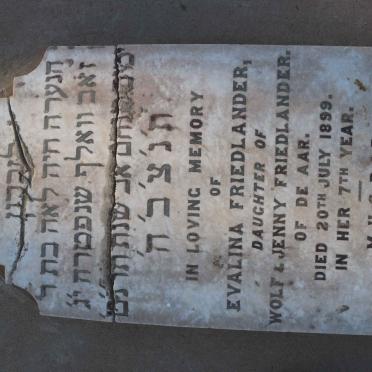 לזכרון
הנערה חיה לאה בת ר'
זאב וואלף שנפטרה י"ג
מנחם אב שנת תרנ"ט
ת'נ'צ'ב'ה'
IN LOVING MEMORY
OF
EVALINA FRIEDLANDER,
DAUGHTER OF
WOLF & JENNY FRIEDLANDER.
OF DE AAR.
DIED 20TH JULY 1899.
IN HER 7TH YEAR.